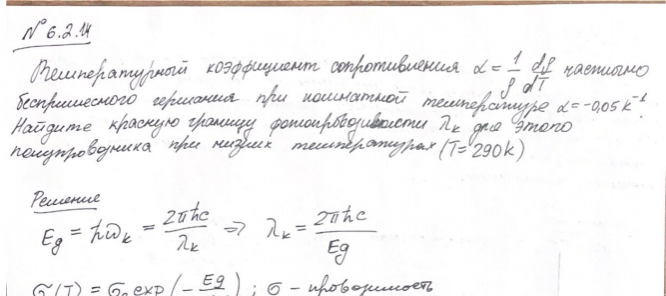 № 6.2.14
Температурный коэффициент сопротивления α = 1/ρ dρ/dT частично
беспримесного германия при комнатной температуре α = -0,05 K⁻¹.
Найдите красную границу фотопроводимости λк для этого
полупроводника при низких температурах (T = 290 k)
Решение
Eg = ħωк = 2πħc/λк ⇒ λк = 2πħc/Eg
σ(T) = σ₀ exp (- Eg/ ) ; σ - проводимость